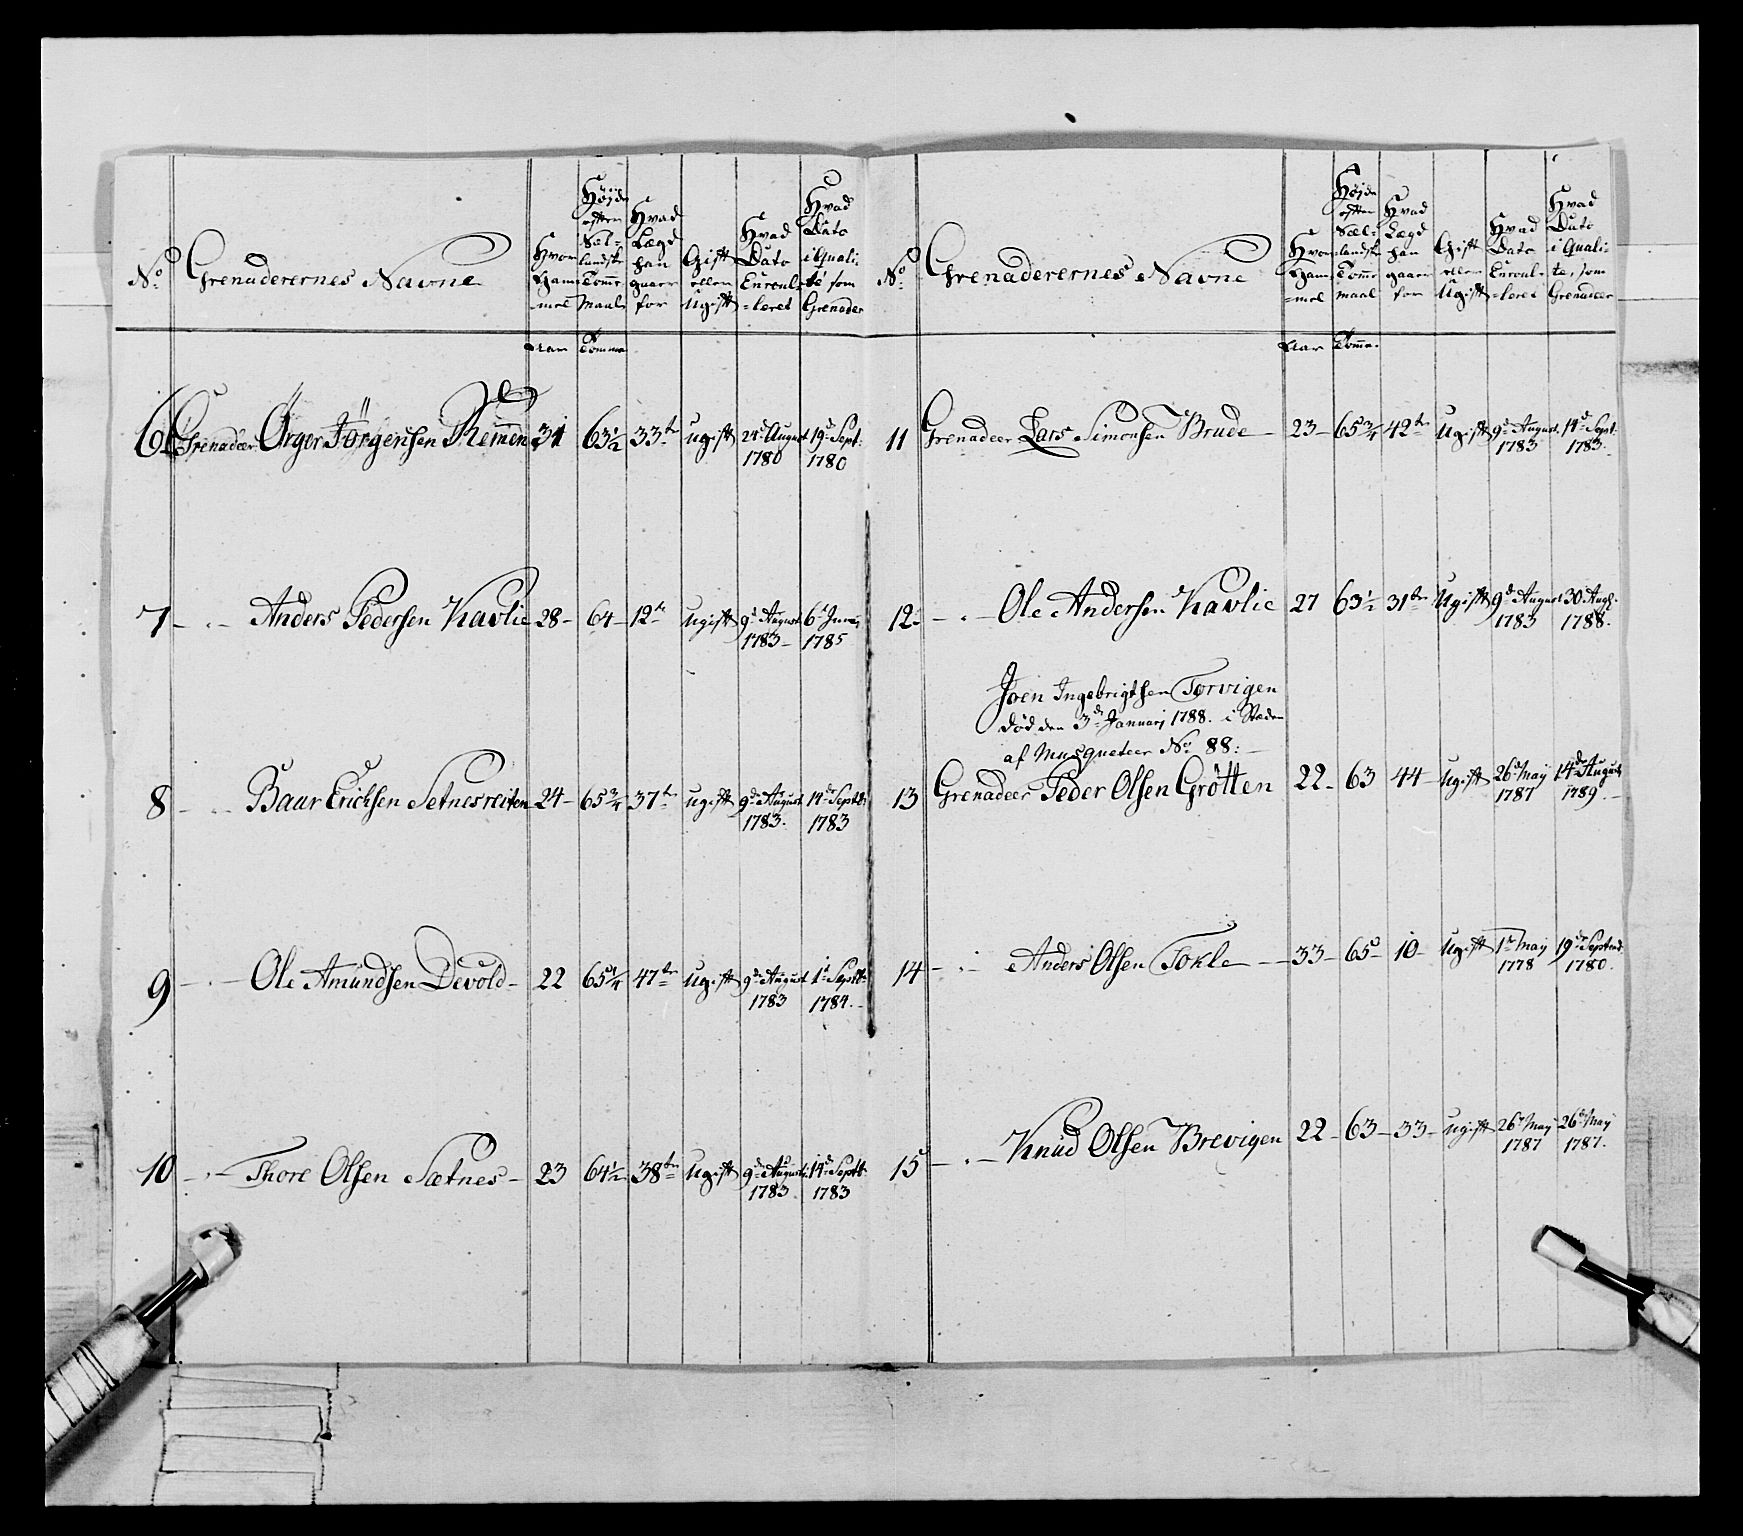 No. Grenaderernes Navne
Hvor Gammel
Højde efter Sællandsk Tomme Maal
Hvad Lægd han gaaer for
Gift eller Ugift
Hvad Dato Enroulleret
Hvad Dato i Qualité som Grenader
Aar Tomme
6 Grenadeer Örger Jörgensen Remmen 31 63½ 33te ugift 24de August 1780 19de Sept: 1780
7 - . - Anders Pedersen Kavlie 28 - 64 - 12te ugift 9de August 1783 - 6te Junii 1785
8 - . - Baar Erichsen Setnesreiten 24 - 65¾ 37te ugift 9de August 1783. 14de Septb: 1783
9 - . - Ole Amundsen Devold - 22 65¼ 47de ugift 9de August 1783 1te Septb: 1784. -
10 - . - Thore Olsen Sætnes - 23 64½ 38te ugift 9de August: 1783. 14de Septb: 1783
No. Grenaderernes Navne
Hvor Gammel
Højde efter Sællandsk Tomme maal
Hvad Lægd han gaaer for
Gift eller Ugift
Hvad Dato Enroulleret
Hvad Dato i Qualite, som Grenadeer
Aar Tomme.
11 Grenadeer Lars Simonsen Brude - 23 - 65¾ 42te ugift 9de August 1783 14de Sept: 1783.
12 - . - Ole Andersen Kavlie 27 63½ 31te ugift 9de August 1783 30 Augs: 1788.
Joen Ingebrigtsen Torvigen
død den 3de Januarj 1788. i Stæden
af Musqueteer No. 88: -
13 Grenadeer Peder Olsen Grötten 22 - 63 44 - ugift 26de May 1787 14de August 1789. -
14 - . - Anders Olsen Tokle - 33 - 65 - 10 - ugift 1te May 1778 19de Septemb: 1780.
15 - . - Knud Olsen Brevigen 22 - 63 - 33 - ugift 26de May 1787 26de May 1787.